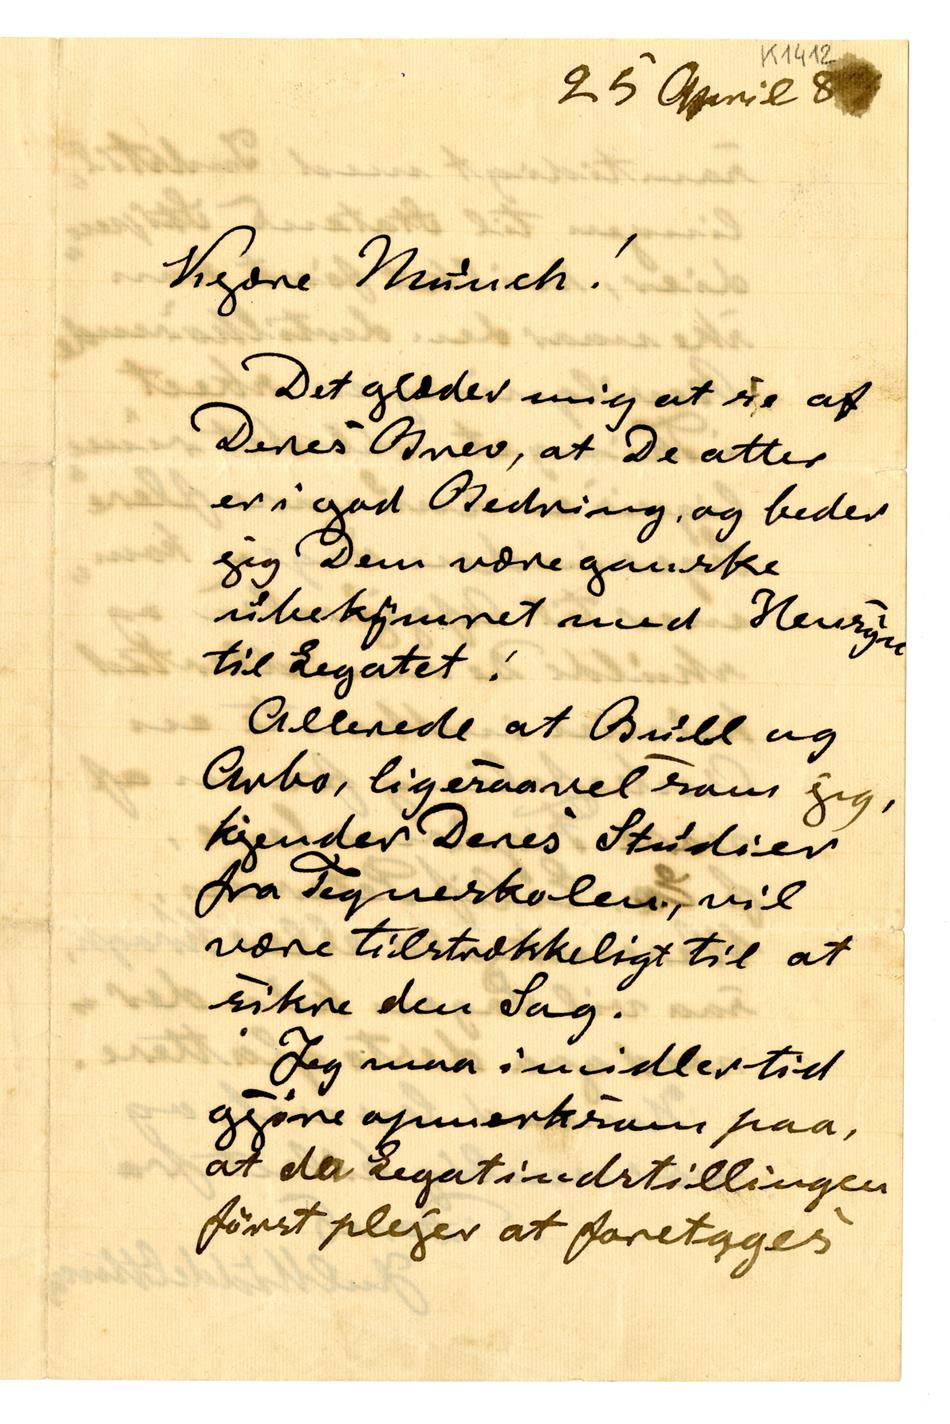 K1412
25 April 8
Kjære Munch!
Det glæder mig at se af
Deres Brev, at De atter
er i god Bedring, og beder
jeg Dem være ganske
ubekymret med Hensyn
til Legatet!
Allerede at Bull og
Arbo, ligesaavel som jeg,
kjender Deres Studier
fra Tegneskolen, vil
være tilstrækkeligt til at
sikre den Sag.
Jeg maa imidlertid
gjøre opmerksom paa,
at da Legatindstillingen
først plejer at foretages